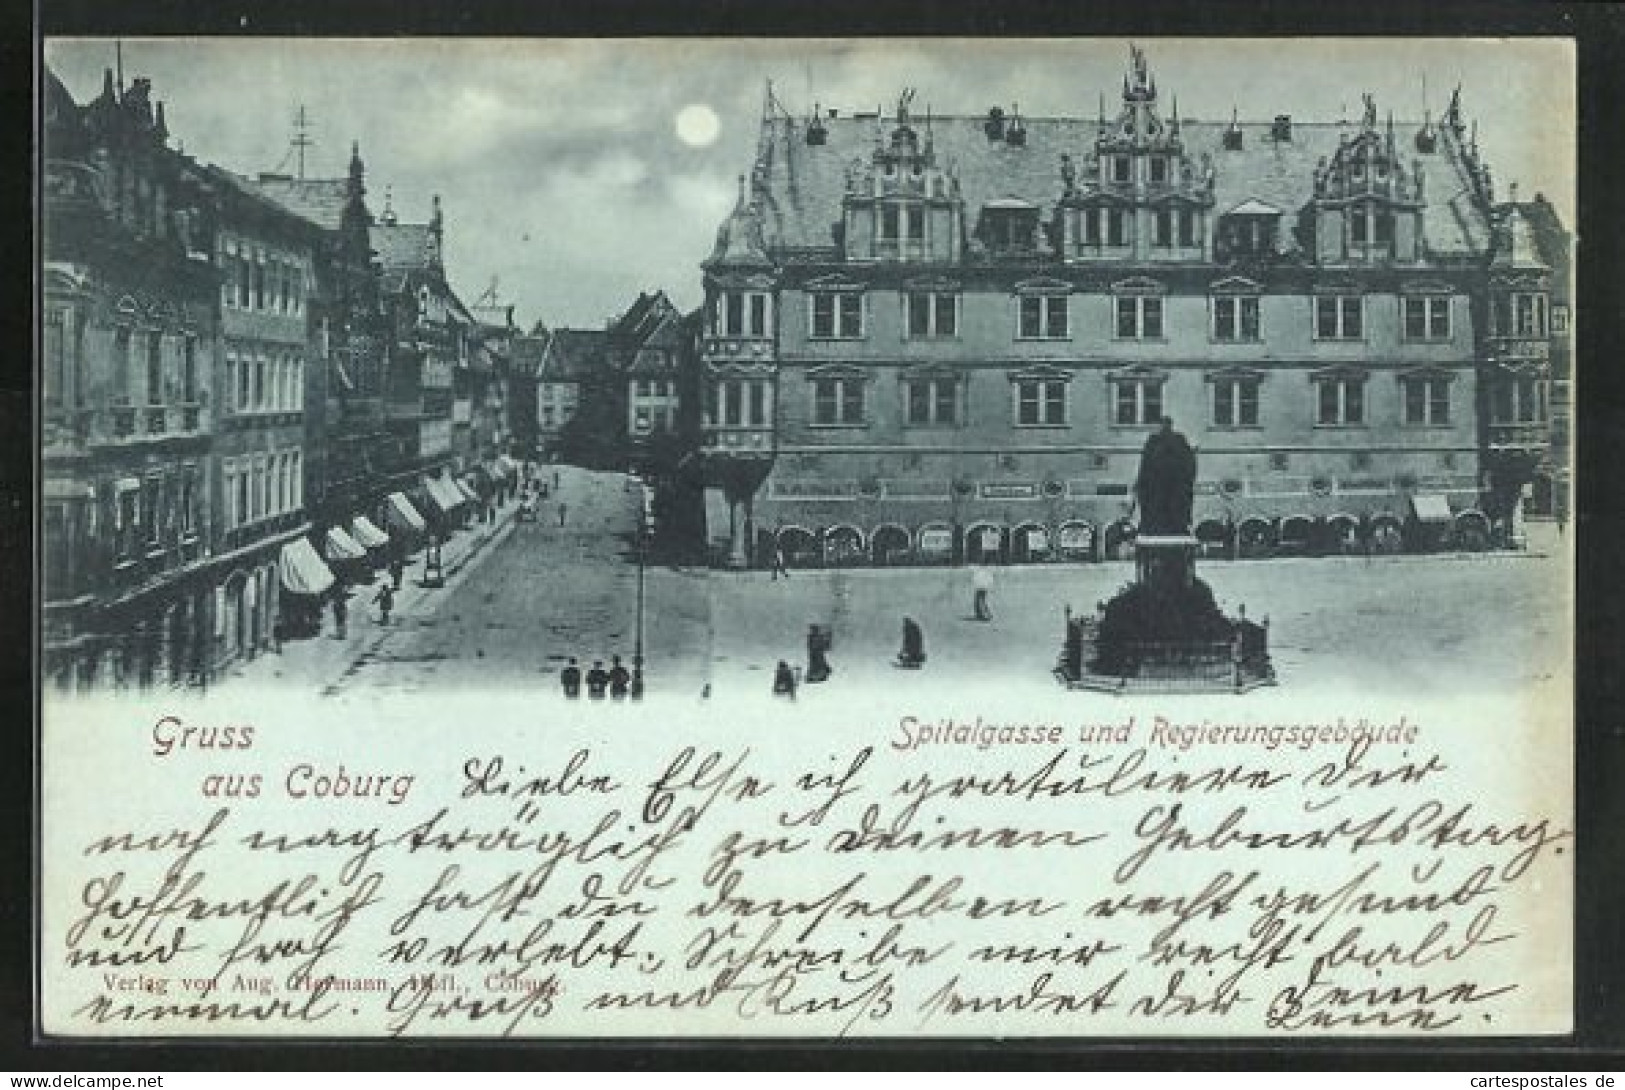 Gruss
aus Coburg
Spitalgasse und Regierungsgebäude
Liebe Else ich gratuliere dir
noch nagträglich zu deinen Geburtstag.
Hoffentlich hast du denselben recht gesund
und froh verlebt. Schreibe mir recht bald
Verlag von Aug. Hermann, Hofl., Coburg.
einmal. Gruß und Kuß sendet dir deine
Leine.
delcampe.net
cartespostales de